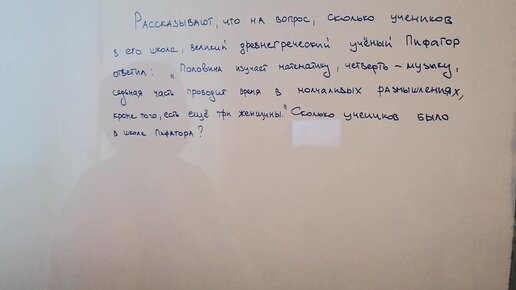 Рассказывают, что на вопрос, сколько учеников
в его школе, великий древнегреческий учёный Пифагор
ответил: "Половина изучает математику, четверть – музыку,
седьмая часть проводит время в молчаливых размышлениях,
кроме того, есть ещё три женщины." Сколько учеников было
в школе Пифагора?